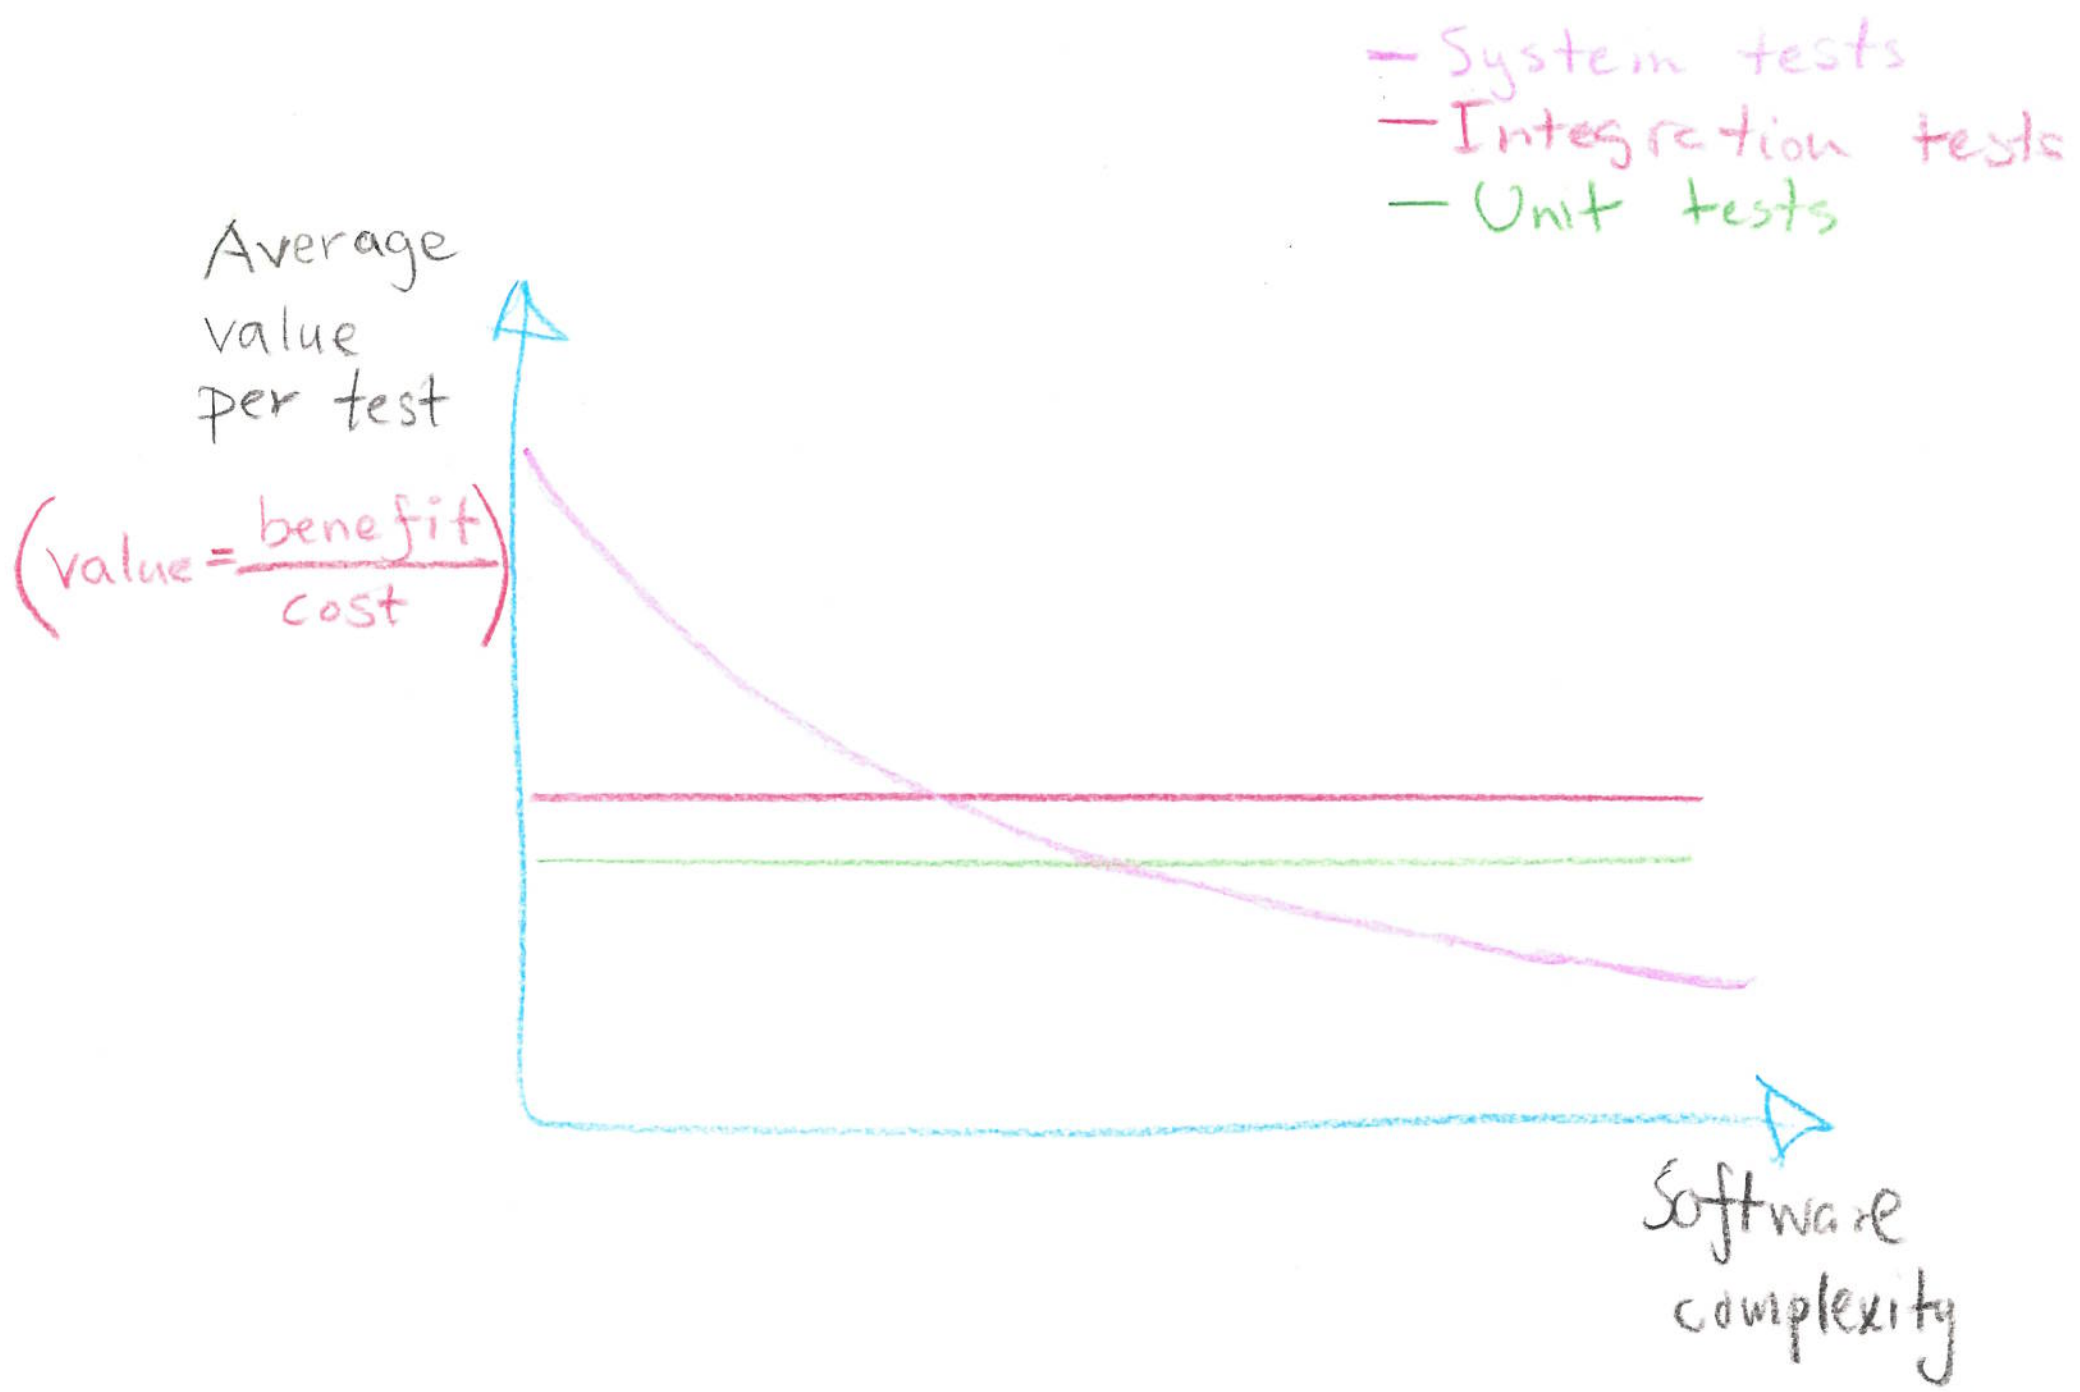 System tests
Integration tests
Unit tests
Average
value
per test
(value = benefit
cost)
Software
complexity